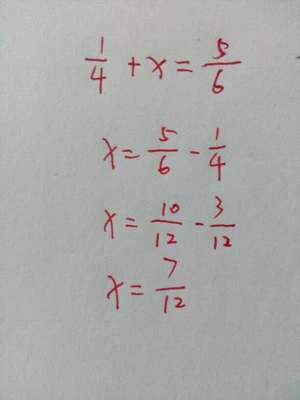 1/4 + x = 5/6
x = 5/6 - 1/4
x = 10/12 - 3/12
x = 7/12